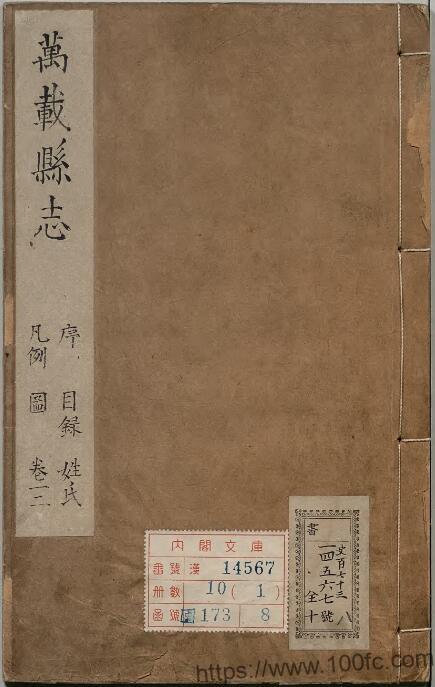 萬載縣志
序 目錄 姓氏
凡例 圖 卷一二
內閣文庫
番號 漢 14567
冊數 10(1)
函號 173 8
書
一四五六七號
全十
八
https://www.100fc.com